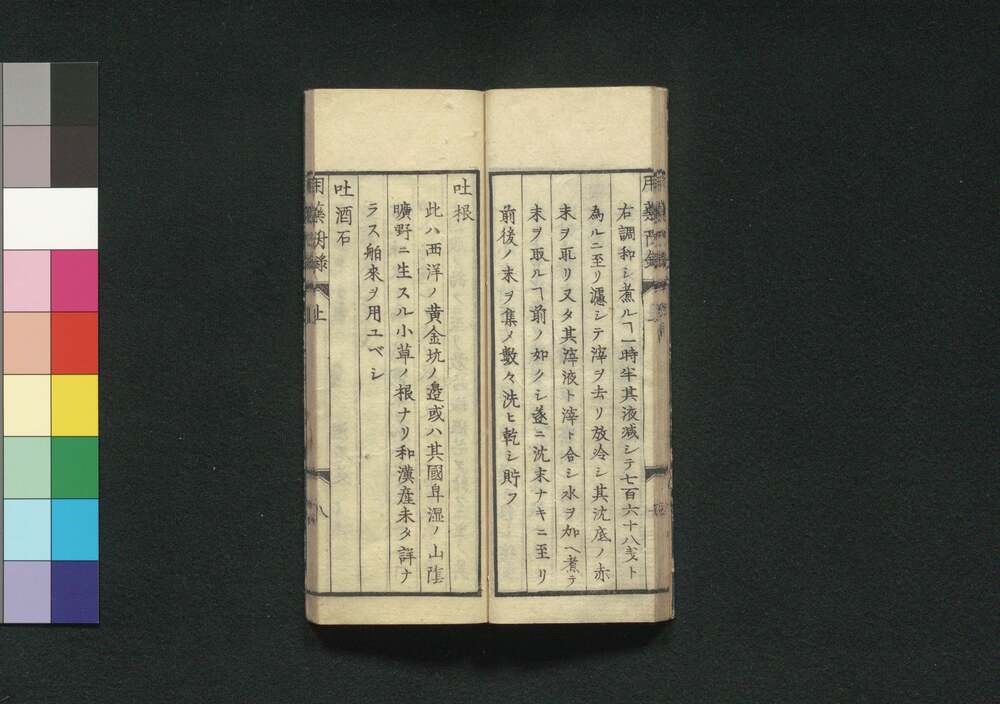 右調和シ煮ルヿ一時半其液減シテ七百六十八戔ト
為ルニ至リ濾シテ滓ヲ去リ放冷シ其沈底ノ赤
末ヲ取リ又タ其滓液ト滓ト合シ水ヲ加ヘ煮テ
末ヲ取ルヿ前ノ如クシ遂ニ沈末ナキニ至リ
前後ノ末ヲ集メ數々洗ヒ乾シ貯フ
吐根
此ハ西洋ノ黄金坑ノ邉或ハ其國卑湿ノ山蔭
曠野ニ生スル小草ノ根ナリ和漢産未タ詳ナ
ラス舶來ヲ用ユベシ
吐酒石
上
八